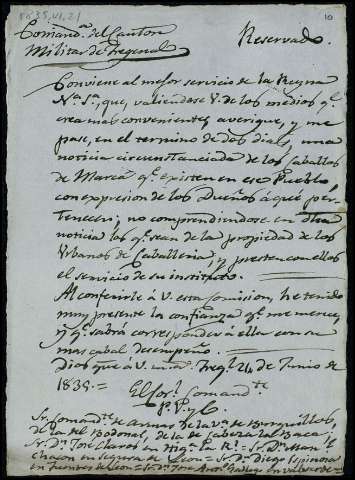 Comand.ª del Canton
Militar de Fregenal
Reservado.
10
Conviene al mejor servicio de la Reyna
N.ª S.ª, que, valiendose V. de los medios q.e
crea mas convenientes, averigue, y me
pase, en el termino de dos dias, una
noticia circunstanciada de los caballos
de Marca q.e existen en ese Pueblo,
con expresion de los Dueños à qué per-
tenecen; no comprendiendose en dha
noticia los q.e sean de la propiedad de los
Urbanos de Caballeria, y presten con ellos
el servicio de su instituto.
Al conferirle à V. esta Comision, he tenido
muy presente la confianza q.e me merece,
y q.e sabrá corresponder à ella con su
mas cabal desempeño.
Dios gue à V. m. a. Freg.l 24 de Junio de
1835.=
El Cor.l Comand.te
Sr. Comand.te de Armas de la V.ª de Burguillos,
de la del Bodonal, de la de Cabeza la Baca,
S.r D.n Jose Claros en Hig.ª la R.l = S.r D.n Man.l
Chacon en Segura de Leon = S.r D.n Diego Espinosa
en Fuentes de Leon = S.r D.n Jose